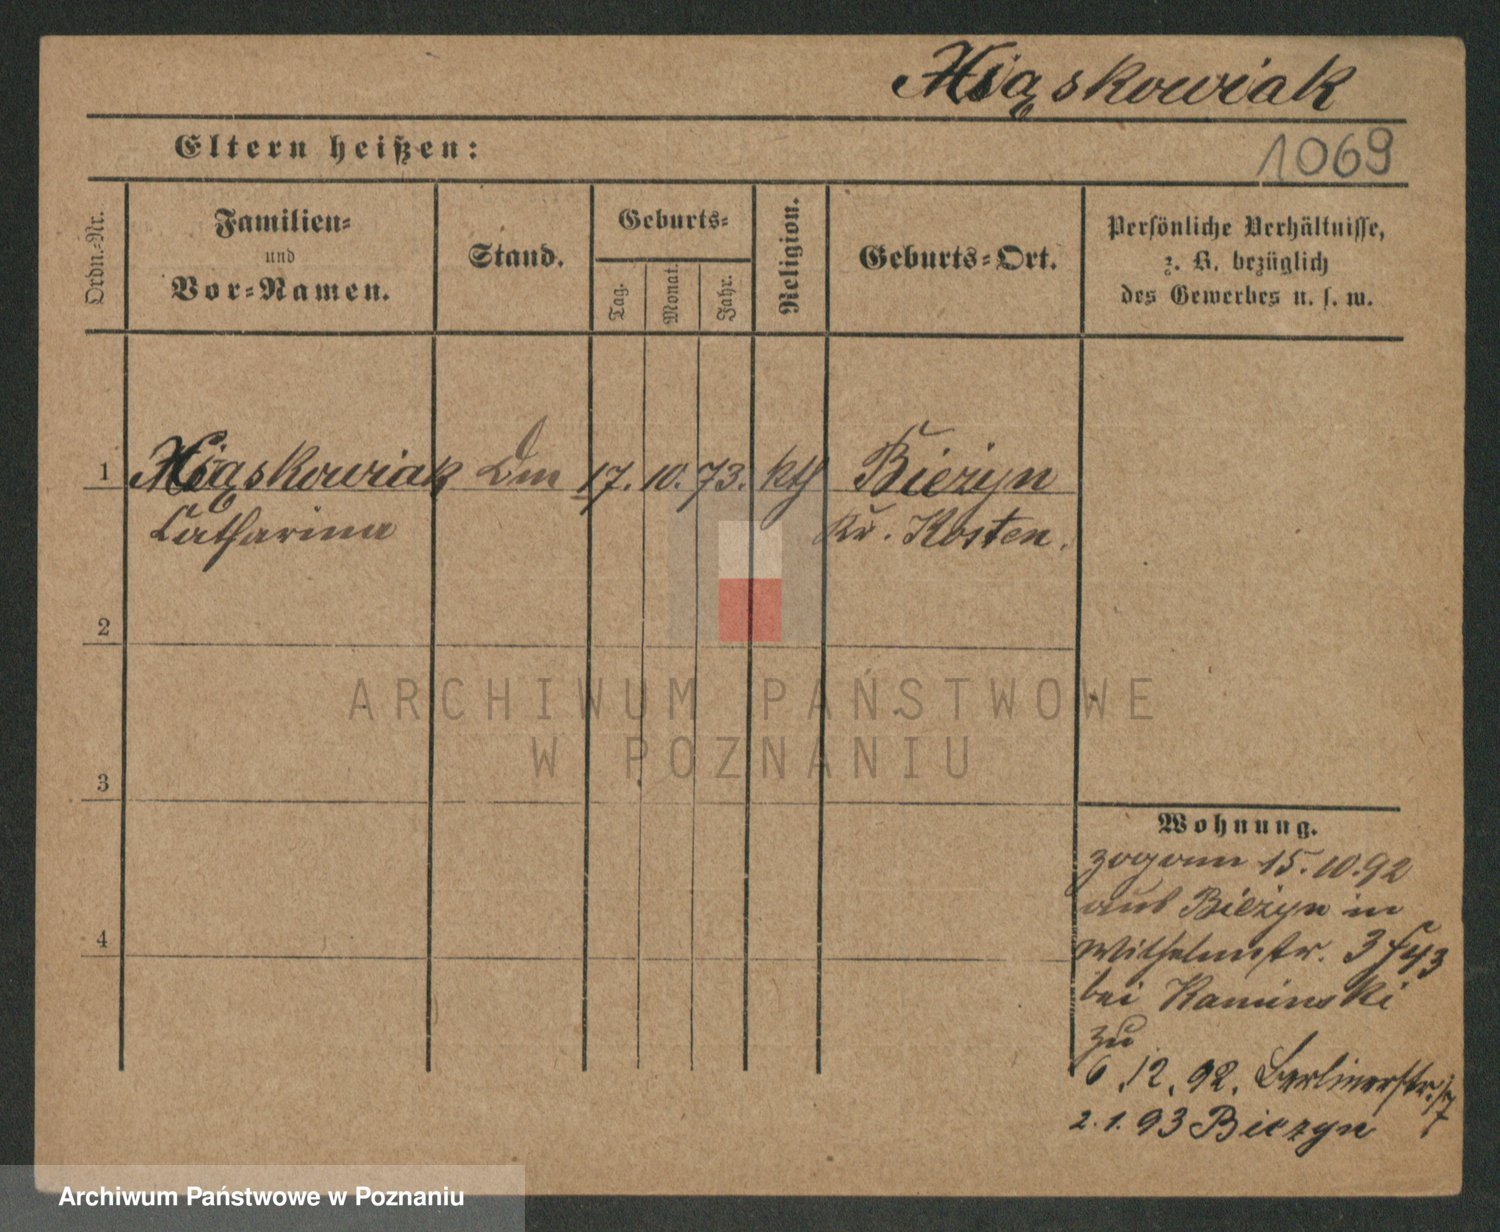 Miąskowiak
Eltern heißen:
1069
Ordn.-Nr.
Familien-
und
Vor-Namen.
Stand.
Geburts-
Tag.
Monat.
Jahr.
Religion.
Geburts-Ort.
Persönliche Verhältnisse,
z. B. bezüglich
des Gewerbes u. s. w.
1 Miąskowiak 17. 10. 73. kth Bieżyn
Catharina Kr. Kosten.
2
3
4
ARCHIWUM PAŃSTWOWE
W POZNANIU
Wohnung.
zog am 15. 10. 92
aus Bieżyn in
Wilhelmstr. 3
bei Kaminski
zu
6. 12. 92. Berlinerstr. 17
2. 1. 93 Biezyn
Archiwum Państwowe w Poznaniu